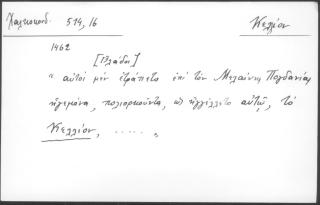 Χαλκοκονδ. 514, 16 Κελλίον
1462
[Βλάδος]
"αὐτοὶ μὲν ἐτράπετο ἐπὶ τὸν Μελαίνης Πογδανίας
ἡγεμόνα, πολιορκοῦντα, ὡς ἠγγέλλετο αὐτῷ, τὸ
Κελλίον, ..... "